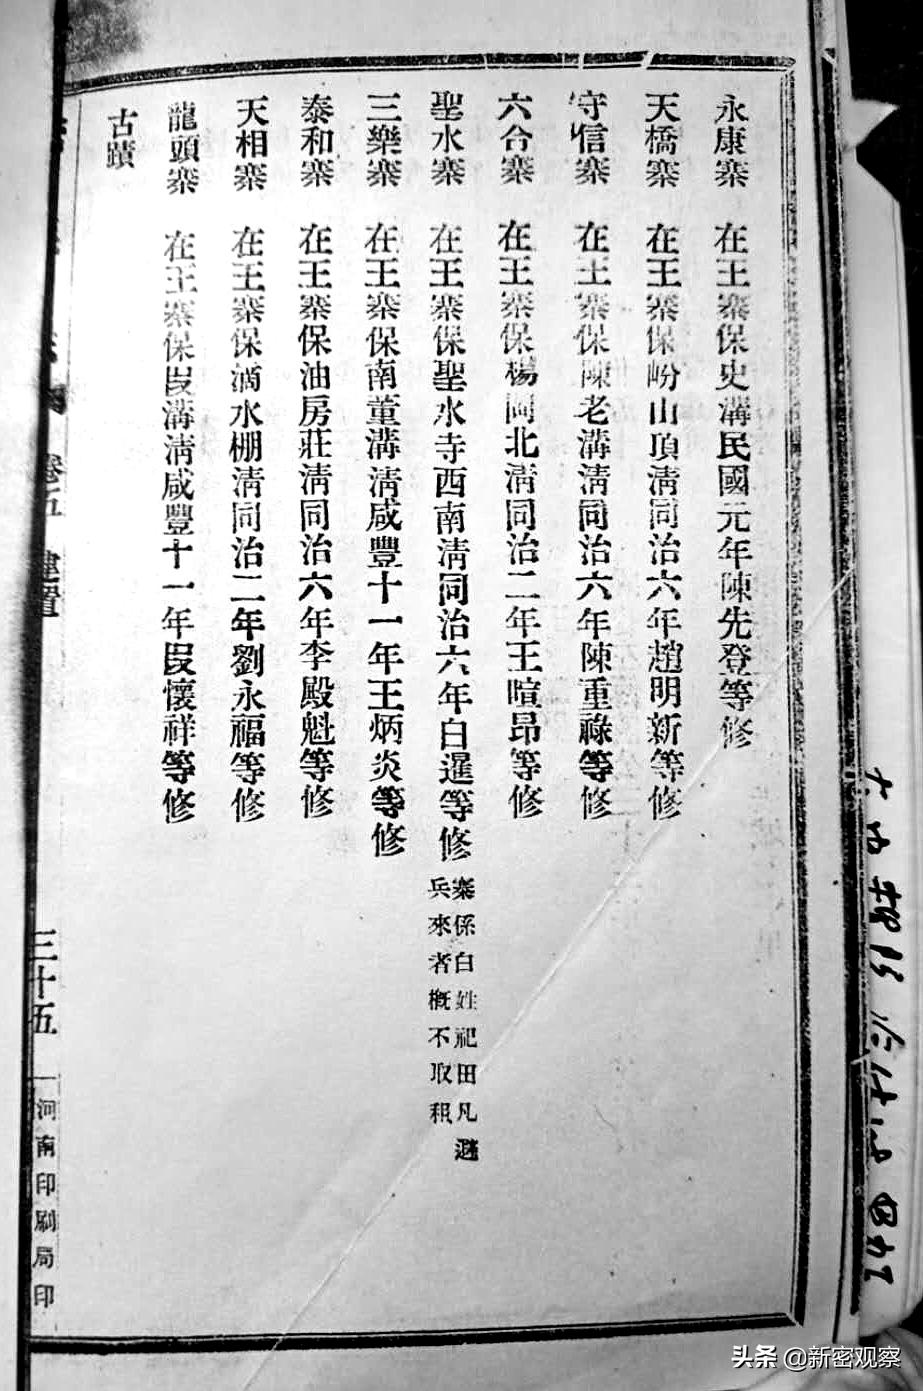 永康寨　在王寨保史溝民國元年陳先登等修
天橋寨　在王寨保岎山頂淸同治六年趙明新等修
守信寨　在王寨保陳老溝淸同治六年陳重祿等修
六合寨　在王寨保楊岡北淸同治二年王暄昂等修
聖水寨　在王寨保聖水寺西南淸同治六年白暹等修
寨係白姓祀田凡避
兵來者槪不取租
三樂寨　在王寨保南董溝淸咸豐十一年王炳炎等修
泰和寨　在王寨保油房莊淸同治六年李殿魁等修
天相寨　在王寨保滴水棚淸同治二年劉永福等修
龍頭寨　在王寨保岌溝淸咸豐十一年岌懷祥等修
古蹟
卷五　建置　三十五　河南印刷局印
头条 @新密观察